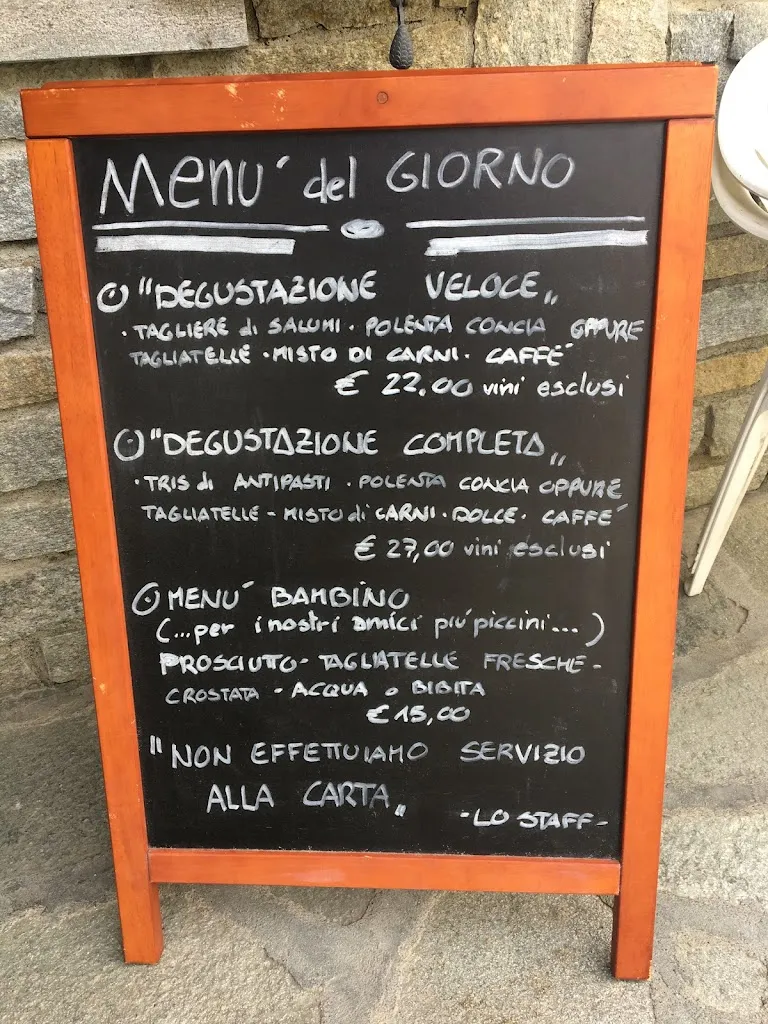 Menu' del GIORNO
"DEGUSTAZIONE VELOCE"
• TAGLIERE di SALUMI • POLENTA CONCIA OPPURE
TAGLIATELLE • MISTO DI CARNI • CAFFE'
€ 22,00 vini esclusi
"DEGUSTAZIONE COMPLETA"
• TRIS di ANTIPASTI • POLENTA CONCIA OPPURE
TAGLIATELLE - MISTO di CARNI • DOLCE • CAFFE'
€ 27,00 vini esclusi
MENU' BAMBINO
(...per i nostri amici piu' piccini...)
PROSCIUTTO - TAGLIATELLE FRESCHE -
CROSTATA • ACQUA o BIBITA
€ 15,00
"NON EFFETTUIAMO SERVIZIO
ALLA CARTA"
- LO STAFF -